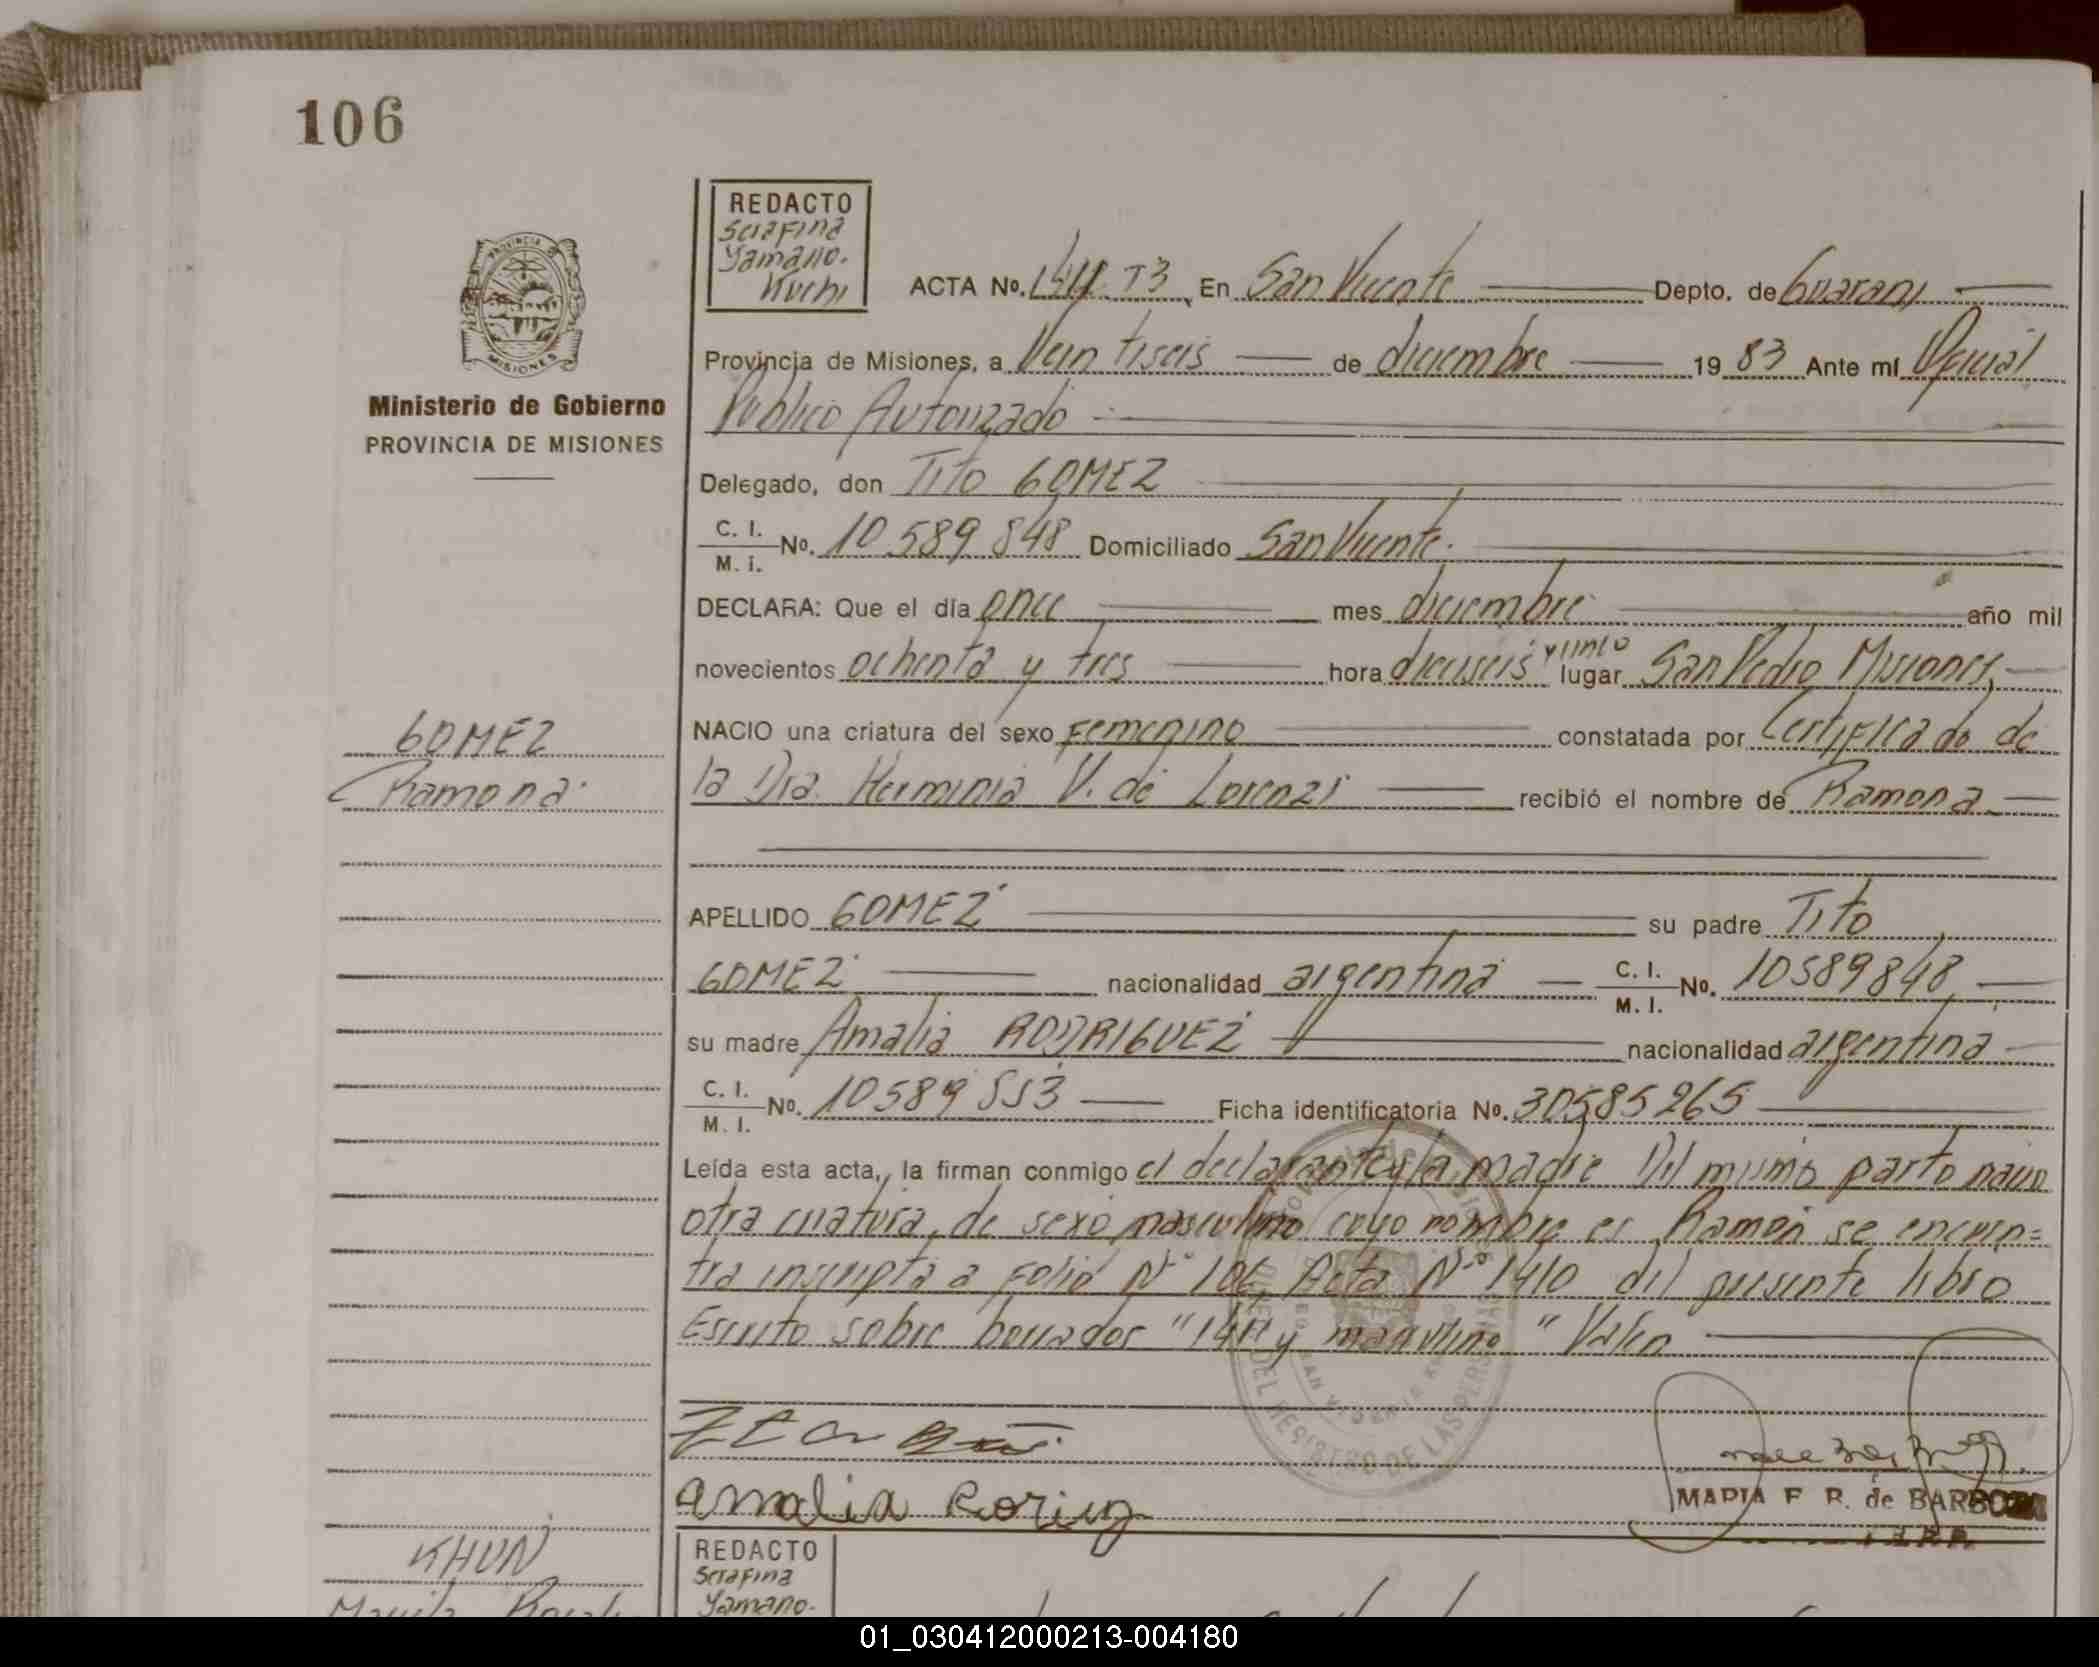 106
REDACTO
Serafina
Yamano.
Kuchi
PROVINCIA DE
MISIONES
Ministerio de Gobierno
PROVINCIA DE MISIONES
ACTA No. 1411 T3 En San Vicente Depto. de Guaraní
Provincia de Misiones, a Veintiseis de diciembre 19 83 Ante mí Oficial
Público Autorizado
Delegado, don Tito GOMEZ
C. I. / M. I. No. 10 589 848 Domiciliado San Vicente.
DECLARA: Que el día once mes diciembre año mil
novecientos ochenta y tres hora dieciseis lugar San Pedro Misiones
NACIO una criatura del sexo Femenino constatada por Certificado de
la Dra. Herminia V. de Lorenzi recibió el nombre de Ramona
GOMEZ
Ramona
APELLIDO GOMEZ su padre Tito
GOMEZ nacionalidad argentina C. I. / M. I. No. 10589848
su madre Amalia RODRIGUEZ nacionalidad argentina
C. I. / M. I. No. 10589 553 Ficha identificatoria No. 30585265
Leída esta acta, la firman conmigo el declarante y la madre Del mismo parto nació
otra criatura, de sexo masculino cuyo nombre es Ramón se encuen=
tra inscripta a Folio Nº 106, Acta Nº 1410 del presente libro
Escrito sobre borrador "1411 y masculino" Valen
DEL REGISTRO DE LAS PERSONAS
Amalia Roriez
MARIA E. R. de BARBOZA
KHUN
REDACTO
Serafina
Yamano.
01_030412000213-004180